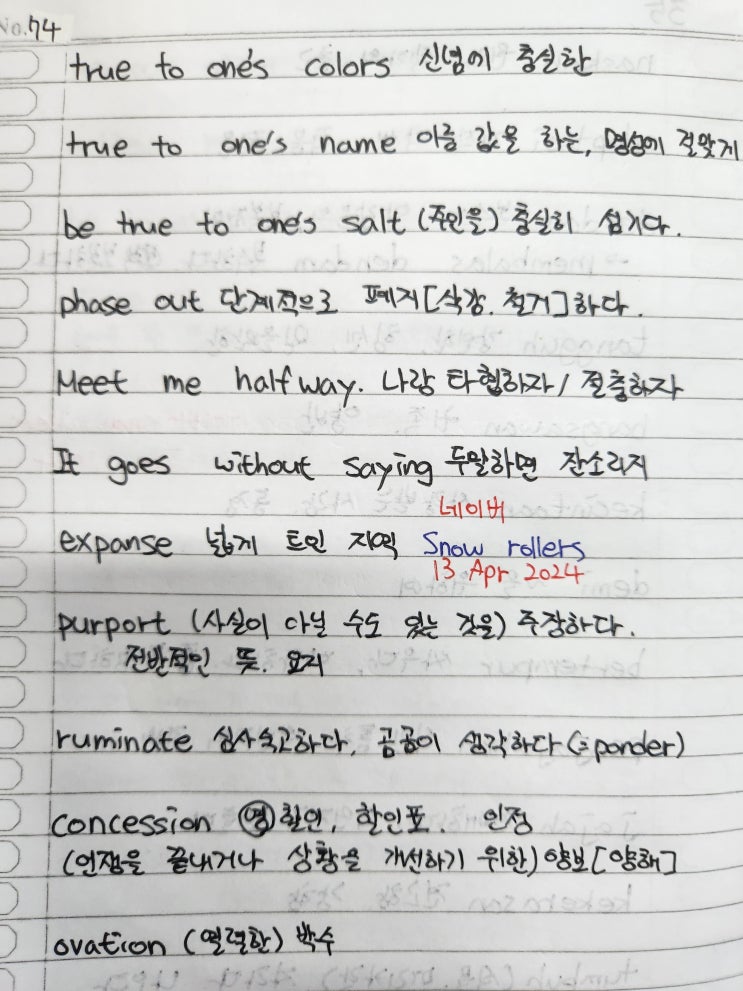 No.74
true to one's colors 신념에 충실한
true to one's name 이름 값을 하는, 명성에 걸맞게
be true to one's salt (주인을) 충실히 섬기다.
phase out 단계적으로 폐지[삭감. 철거]하다.
Meet me halfway. 나랑 타협하자/ 절충하자
It goes without saying 두말하면 잔소리지
네이버
expanse 넓게 트인 지역 Snow rollers
13 Apr 2024
purport (사실이 아닐 수도 있는 것을) 주장하다.
전반적인 뜻. 요지
ruminate 심사숙고하다, 곰곰이 생각하다 (=ponder)
concession 명 할인, 할인표. 인정
(언쟁을 끝내거나 상황을 개선하기 위한) 양보[양해]
ovation (열렬한) 박수